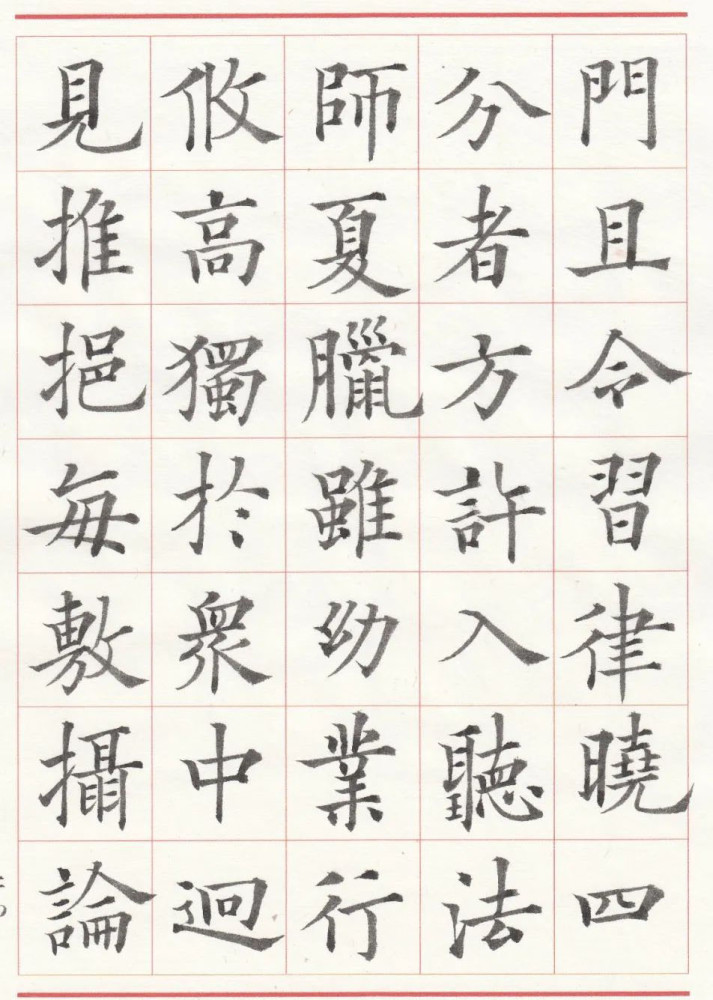 門且令習律曉四
分者方許入聽法
師夏臘雖幼業行
攸高獨於衆中迥
見推挹每敷攝論